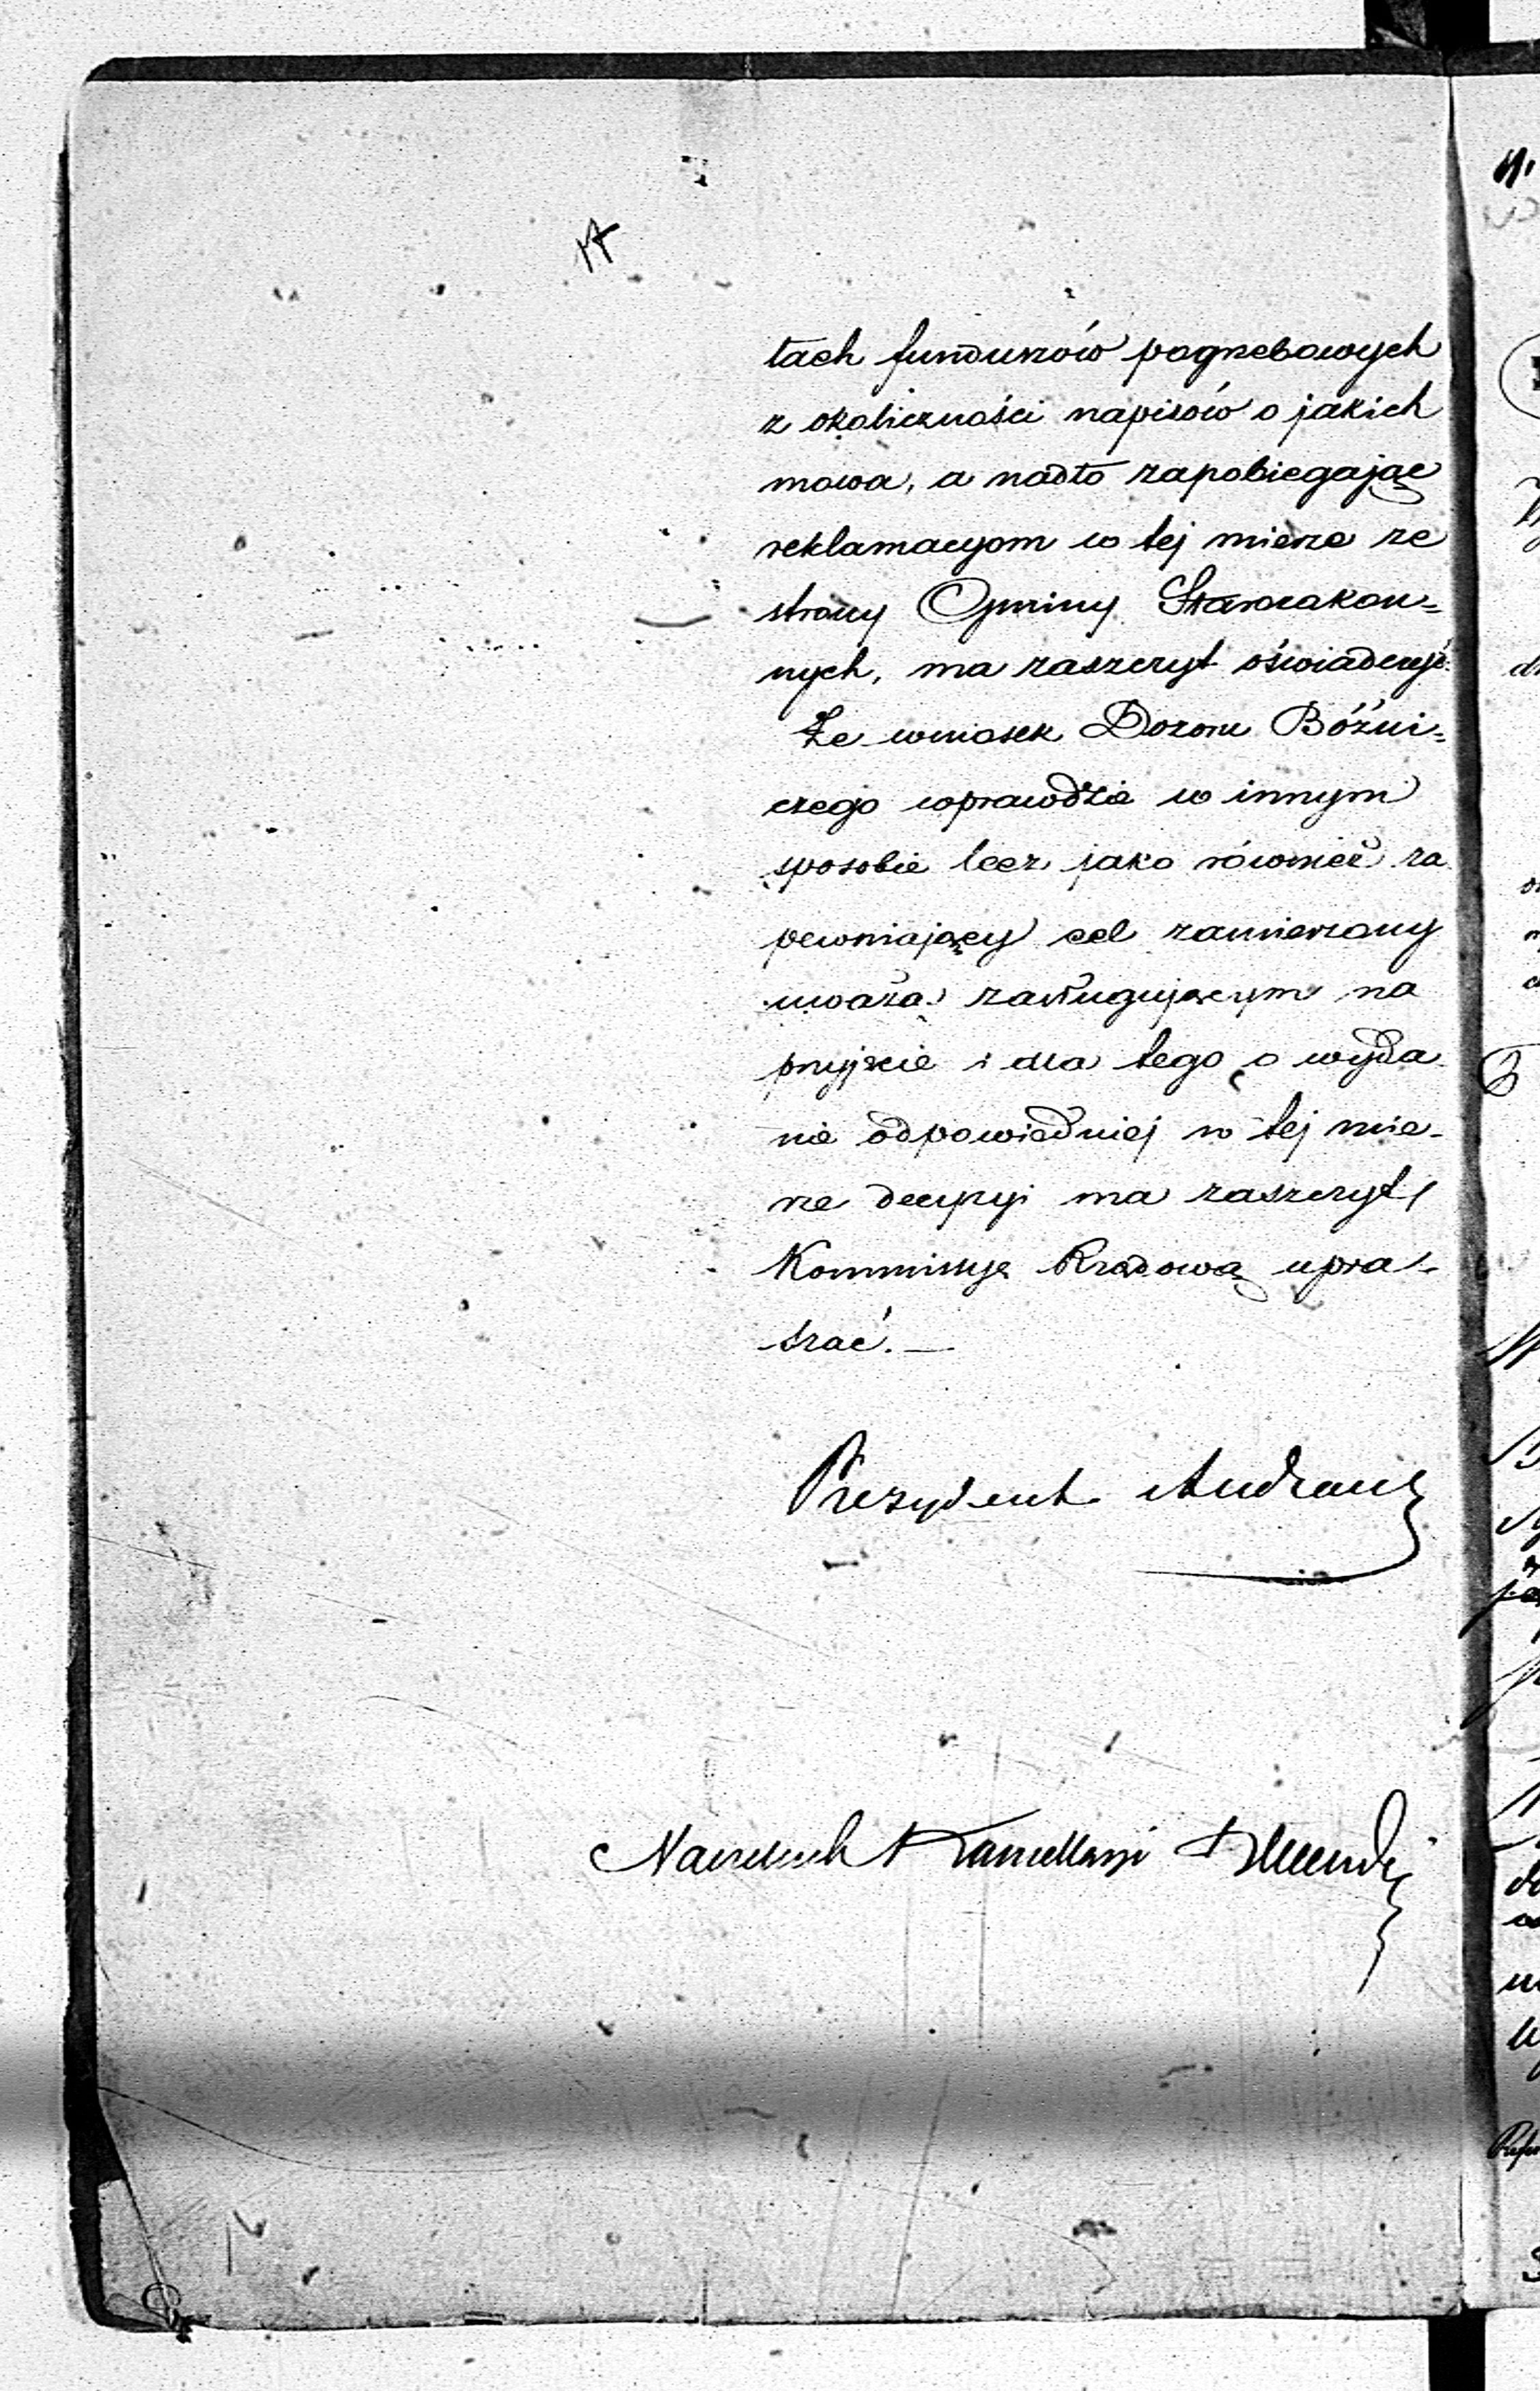 17
tach funduszów pogrzebowych
z okoliczności napisów o jakich
mowa, a nadto zapobiegając
reklamacyom w tej mierze ze
strony Gminy Starozakon=
nych, ma zaszczyt oświadczyć
Że wniosek Dozoru Bóżni=
czego wprawdzie w innym
sposobie lecz jako również za
pewniający cel zamierzony
uważa zasługującym na
przyjęcie i dla tego o wyda
nie odpowiedniej w tej mie-
rze decyzyi ma zaszczyt
Kommissyę Rządową upra-
szać. —
Prezydent Andrault
Naczelnik Kancellaryi